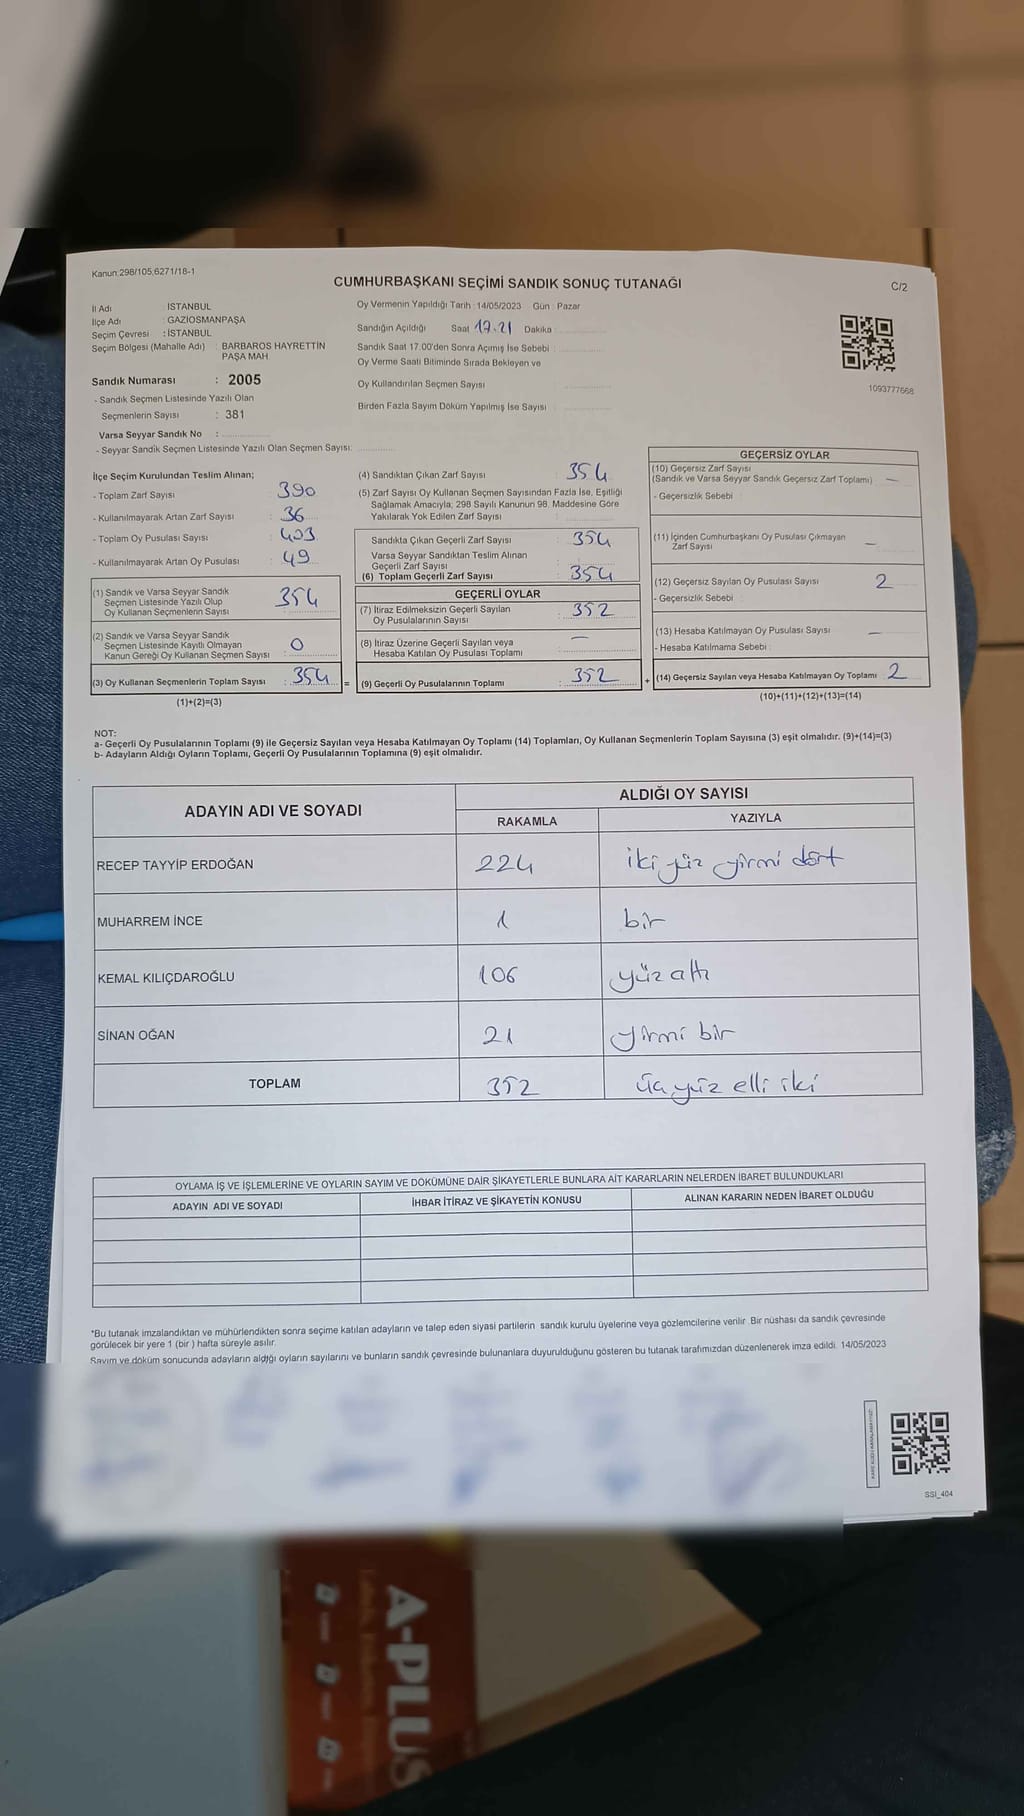 Kanun:298/105,6271/18-1
CUMHURBAŞKANI SEÇİMİ SANDIK SONUÇ TUTANAĞI
C/2
İl Adı : İSTANBUL
İlçe Adı : GAZİOSMANPAŞA
Seçim Çevresi : İSTANBUL
Seçim Bölgesi (Mahalle Adı) : BARBAROS HAYRETTİN
PAŞA MAH
Sandık Numarası : 2005
- Sandık Seçmen Listesinde Yazılı Olan
Seçmenlerin Sayısı : 381
Varsa Seyyar Sandık No :
- Seyyar Sandık Seçmen Listesinde Yazılı Olan Seçmen Sayısı:
Oy Vermenin Yapıldığı Tarih : 14/05/2023 Gün : Pazar
Sandığın Açıldığı Saat 17.21 Dakika :
Sandık Saat 17.00'den Sonra Açımış İse Sebebi :
Oy Verme Saati Bitiminde Sırada Bekleyen ve
Oy Kullandırılan Seçmen Sayısı :
Birden Fazla Sayım Döküm Yapılmış İse Sayısı :
1093777668
İlçe Seçim Kurulundan Teslim Alınan;
- Toplam Zarf Sayısı : 390
- Kullanılmayarak Artan Zarf Sayısı : 36
- Toplam Oy Pusulası Sayısı : 403
- Kullanılmayarak Artan Oy Pusulası : 49
(1) Sandık ve Varsa Seyyar Sandık
Seçmen Listesinde Yazılı Olup
Oy Kullanan Seçmenlerin Sayısı : 354
(2) Sandık ve Varsa Seyyar Sandık
Seçmen Listesinde Kayıtlı Olmayan
Kanun Gereği Oy Kullanan Seçmen Sayısı : 0
(3) Oy Kullanan Seçmenlerin Toplam Sayısı : 354 =
(1)+(2)=(3)
(4) Sandıktan Çıkan Zarf Sayısı : 354
(5) Zarf Sayısı Oy Kullanan Seçmen Sayısından Fazla İse, Eşitliği
Sağlamak Amacıyla; 298 Sayılı Kanunun 98. Maddesine Göre
Yakılarak Yok Edilen Zarf Sayısı :
Sandıkta Çıkan Geçerli Zarf Sayısı : 354
Varsa Seyyar Sandıktan Teslim Alınan
Geçerli Zarf Sayısı :
(6) Toplam Geçerli Zarf Sayısı : 354
GEÇERLİ OYLAR
(7) İtiraz Edilmeksizin Geçerli Sayılan
Oy Pusulalarının Sayısı : 352
(8) İtiraz Üzerine Geçerli Sayılan veya
Hesaba Katılan Oy Pusulası Toplamı : —
(9) Geçerli Oy Pusulalarının Toplamı : 352 +
GEÇERSİZ OYLAR
(10) Geçersiz Zarf Sayısı
(Sandık ve Varsa Seyyar Sandık Geçersiz Zarf Toplamı) —
- Geçersizlik Sebebi
(11) İçinden Cumhurbaşkanı Oy Pusulası Çıkmayan
Zarf Sayısı —
(12) Geçersiz Sayılan Oy Pusulası Sayısı 2
- Geçersizlik Sebebi :
(13) Hesaba Katılmayan Oy Pusulası Sayısı —
- Hesaba Katılmama Sebebi :
(14) Geçersiz Sayılan veya Hesaba Katılmayan Oy Toplamı 2
(10)+(11)+(12)+(13)=(14)
NOT:
a- Geçerli Oy Pusulalarının Toplamı (9) ile Geçersiz Sayılan veya Hesaba Katılmayan Oy Toplamı (14) Toplamları, Oy Kullanan Seçmenlerin Toplam Sayısına (3) eşit olmalıdır. (9)+(14)=(3)
b- Adayların Aldığı Oyların Toplamı, Geçerli Oy Pusulalarının Toplamına (9) eşit olmalıdır.
ADAYIN ADI VE SOYADI
ALDIĞI OY SAYISI
RAKAMLA YAZIYLA
RECEP TAYYİP ERDOĞAN 224 iki yüz yirmi dört
MUHARREM İNCE 1 bir
KEMAL KILIÇDAROĞLU 106 yüz altı
SİNAN OĞAN 21 yirmi bir
TOPLAM 352 üç yüz elli iki
OYLAMA İŞ VE İŞLEMLERİNE VE OYLARIN SAYIM VE DÖKÜMÜNE DAİR ŞİKAYETLERLE BUNLARA AİT KARARLARIN NELERDEN İBARET BULUNDUKLARI
ADAYIN ADI VE SOYADI İHBAR İTİRAZ VE ŞİKAYETİN KONUSU ALINAN KARARIN NEDEN İBARET OLDUĞU
*Bu tutanak imzalandıktan ve mühürlendikten sonra seçime katılan adayların ve talep eden siyasi partilerin sandık kurulu üyelerine veya gözlemcilerine verilir. Bir nüshası da sandık çevresinde
görülecek bir yere 1 (bir) hafta süreyle asılır.
Sayım ve döküm sonucunda adayların aldığı oyların sayılarını ve bunların sandık çevresinde bulunanlara duyurulduğunu gösteren bu tutanak tarafımızdan düzenlenerek imza edildi. 14/05/2023
SSI_404
A-PLUS